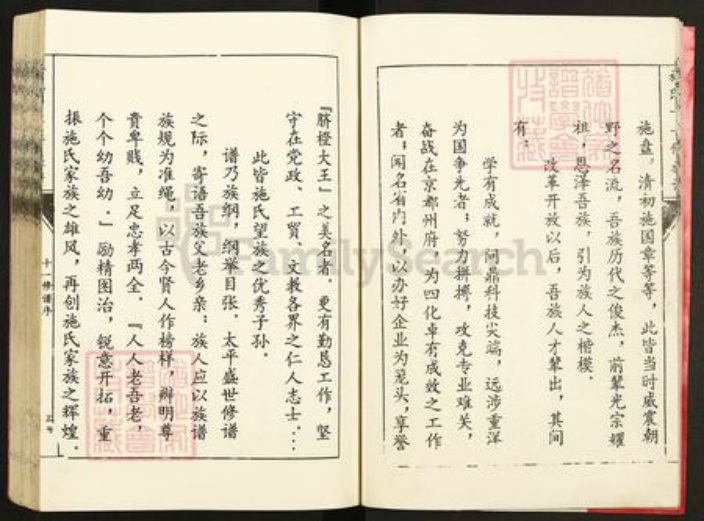 施盘，清初施国章等等，此皆当时威震朝
野之名流，吾族历代之俊杰，前辈光宗耀
祖，恩泽吾族，引为族人之楷模、
改革开放以后，吾族人才辈出，其间
有：
学有成就，问鼎科技尖端，远涉重洋
为国争光者；努力拼搏，攻克专业难关，
奋战在京都州府，为四化卓有成效之工作
者；闻名省内外，以办好企业为龙头，享誉
『脐橙大王』之美名者，更有勤恳工作，坚
守在党政、工贸、文教各界之仁人志士．．．
此皆施氏望族之优秀子孙．
谱乃族纲，纲举目张．太平盛世修谱
之际，寄语吾族父老乡亲：族人应以族谱
族规为准绳，以古今贤人作榜样，辨明尊
贵卑贱，立足忠孝两全．『人人老吾老，
个个幼吾幼．』励精图治，锐意开拓，重
振施氏家族之雄风，再创施氏家族之辉煌．
十一修谱序
FamilySearch